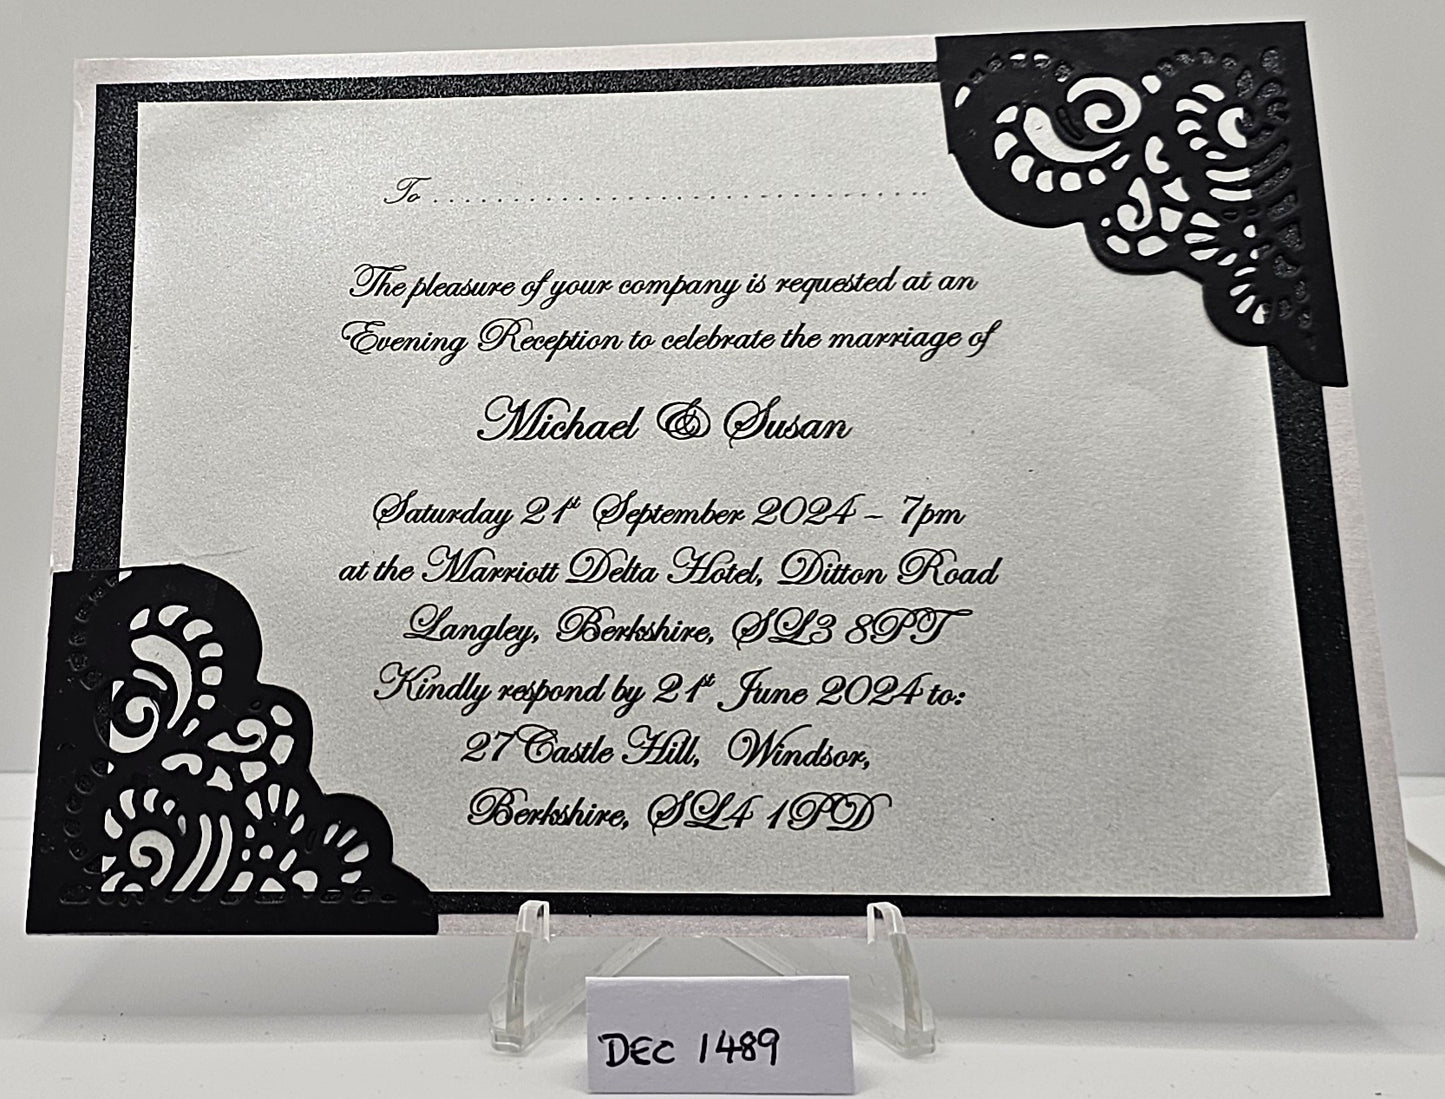 To ........................................
The pleasure of your company is requested at an
Evening Reception to celebrate the marriage of
Michael & Susan
Saturday 21st September 2024 - 7pm
at the Marriott Delta Hotel, Ditton Road
Langley, Berkshire, SL3 8PT
Kindly respond by 21st June 2024 to:
27 Castle Hill, Windsor,
Berkshire, SL4 1PD
DEC 1489